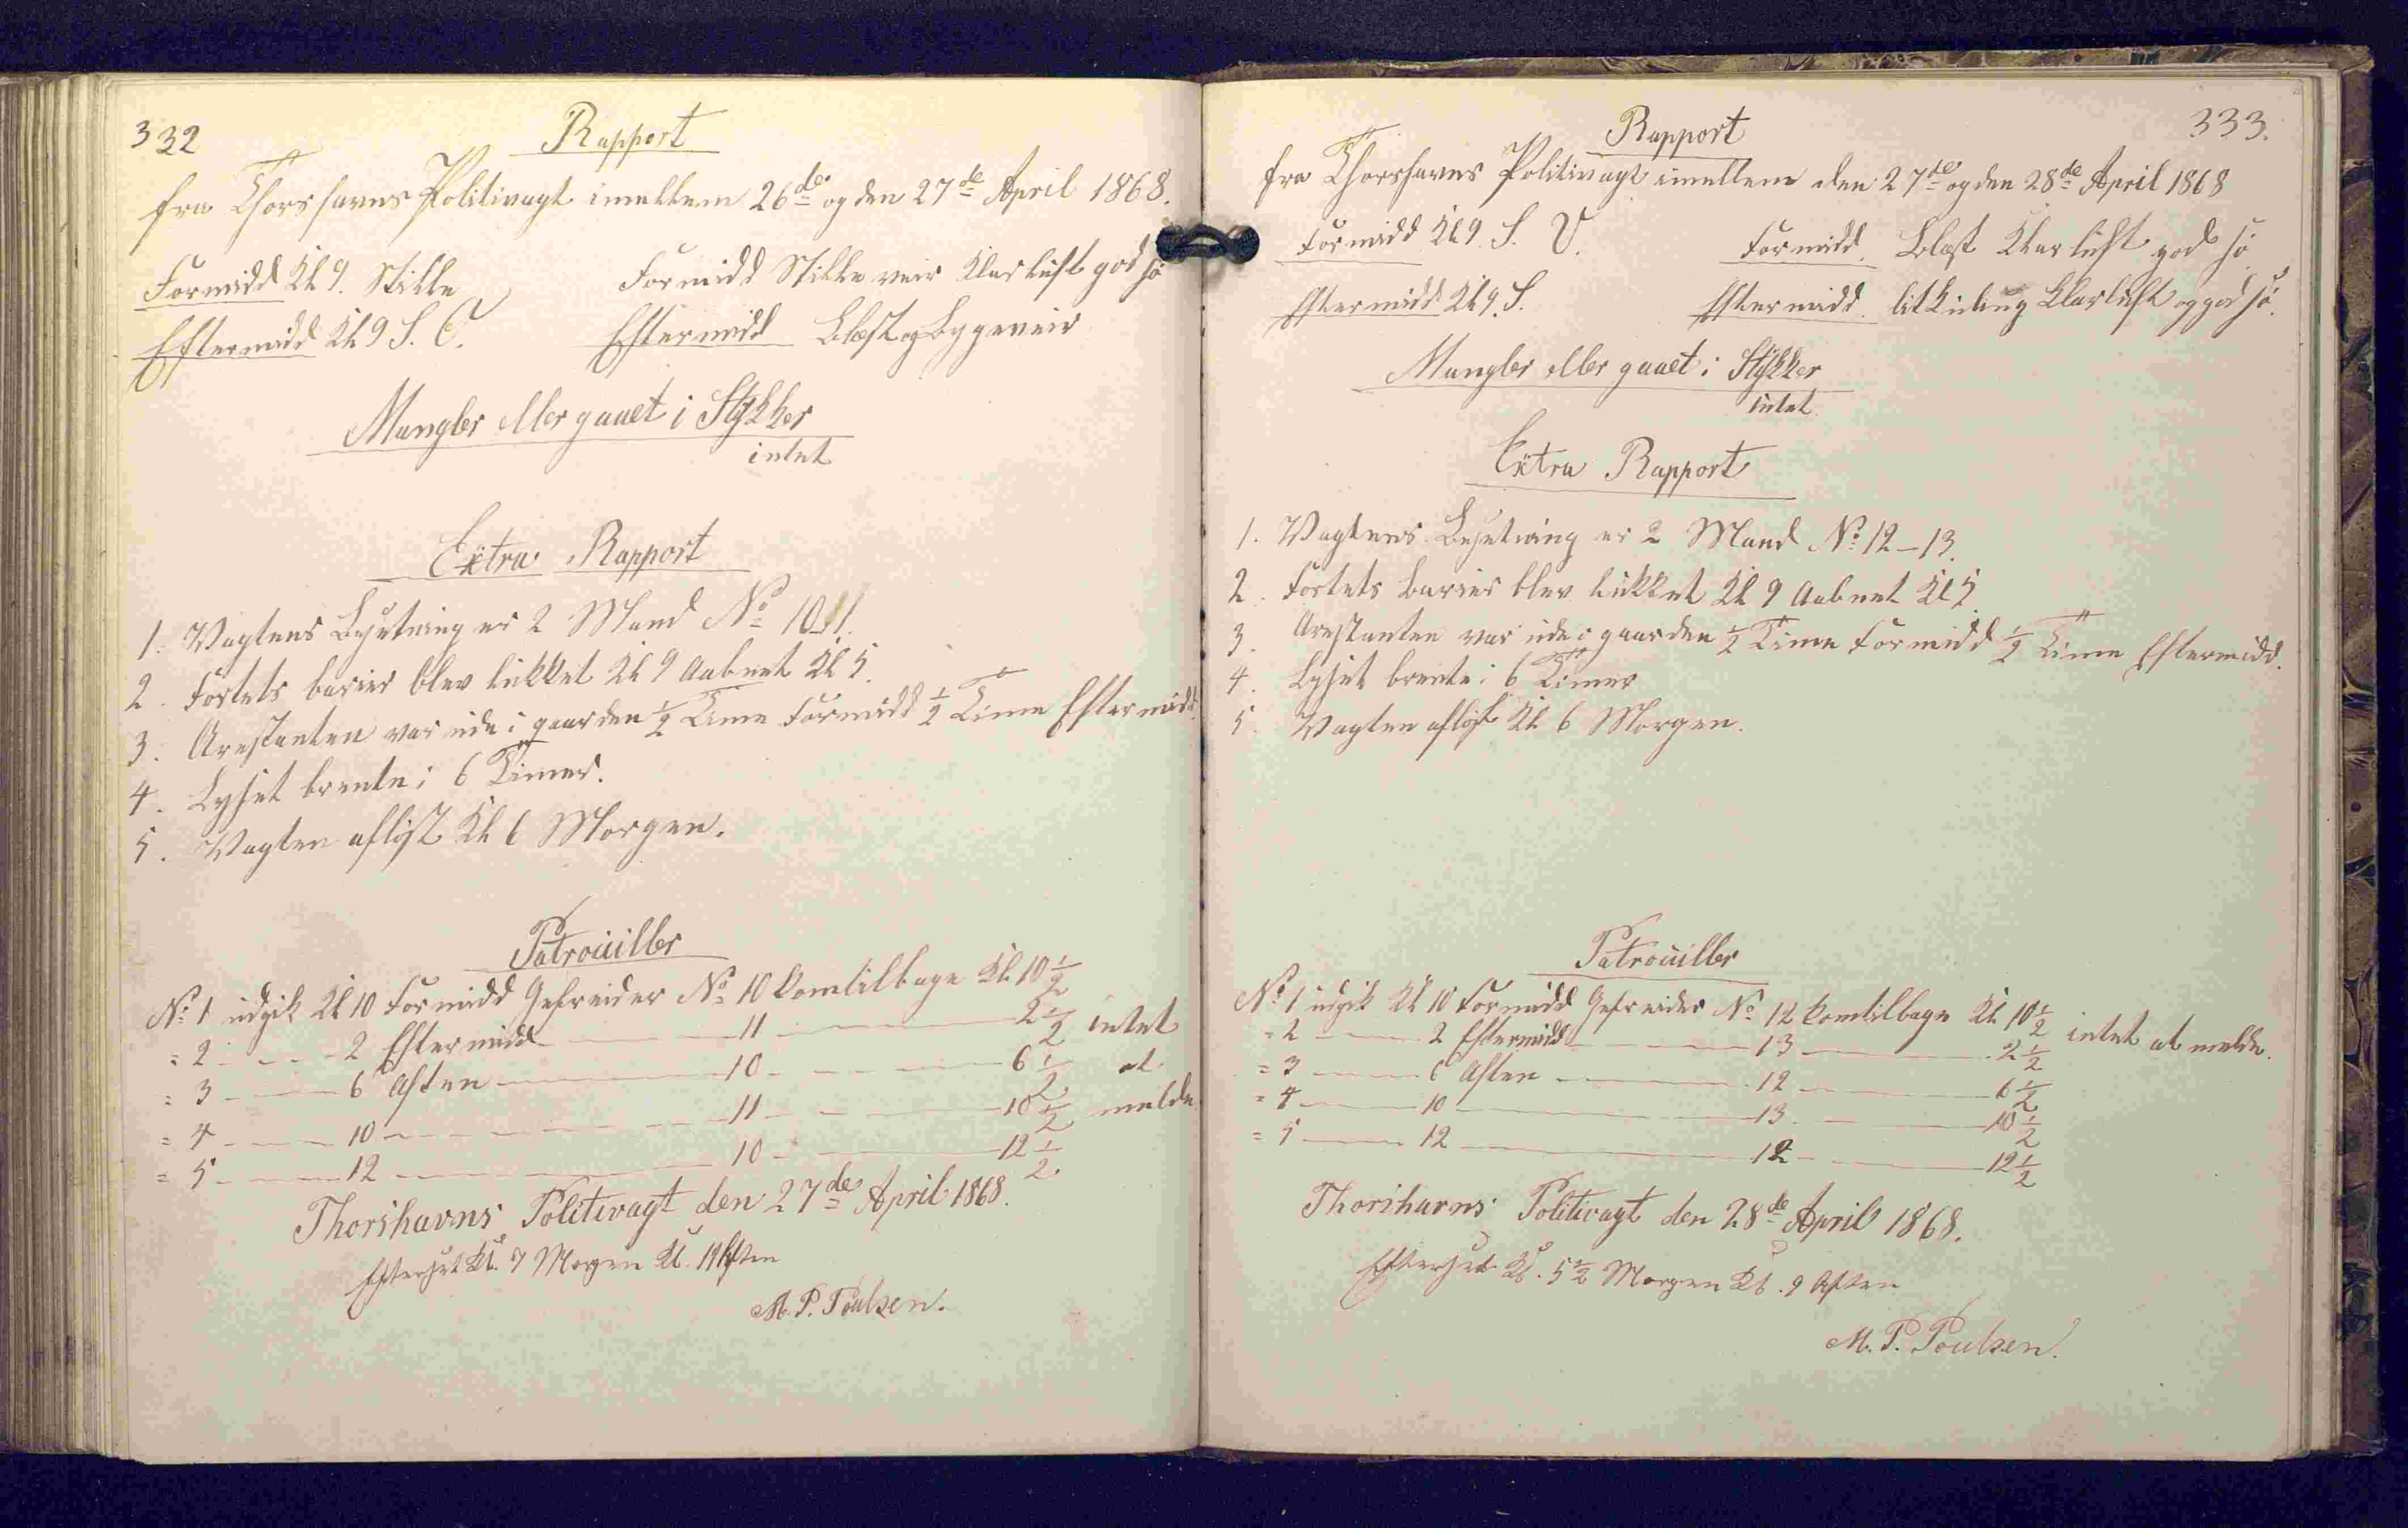 332
Rapport
fra Thorshavns Politivagt imellem 26de og den 27de April 1868.
Formidd Kl 9. Stille Formidd Stille veir Klarluft god sö
Eftermidd Kl 9 S. O. Eftermidd Blæst og Bygeveir
Mangler eller gaaet i Stykker
intet
Extra Rapport
1. Vagtens Besetning er 2 Mand No 10_11.
2. Fortets barier blev lukket Kl 9 Aabnet Kl 5.
3. Arestanten var ude i gaarden ½ Time Formidd ½ Time Eftermidd.
4. Lyset brente i 6 Timer.
5. Vagten aflöst Kl 6 Morgen.
Patrouiller
No 1 udgik Kl 10 Formidd Gefreider No 10 komtilbage Kl 10 ½
= 2 - - - 2 Eftermidd - 11 - 2 ½ intet
= 3 - - 6 Aften - 10 - 6 ½ at
= 4 - - 10 - - 11 - 10 ½ melde.
= 5 - - 12 - 10 - 12 ½
Thorshavns Politivagt den 27de April 1868.
Efterset Kl. 7 Morgen Kl. 11 Aften
M. P. Poulsen.
333.
Rapport
fra Thorshavns Politivagt imellem den 27de og den 28de April 1868
Formidd Kl 9. S. V. Formidd. Blæst Klarluft god sö
Eftermidd Kl 9. S. Eftermidd. litkuling Klarluft og god sö.
Mangler eller gaaet i Stykker
intet
Extra Rapport
1. Vagtens Besetning er 2 Mand No 12_13.
2. Fortets barier blev lukket Kl 9 Aabnet Kl 5
3. Arestanten var ude i gaarden ½ Time Formidd ½ Time Eftermidd.
4. Lyset brente i 6 Timer
5. Vagten aflöst Kl 6 Morgen.
Patrouiller
No 1 udgik Kl 10 Formidd Gefreider No 12 komtilbage Kl 10 ½ intet at melde.
= 2 - 2 Eftermidd - 13 - 2 ½
= 3 - 6 Aften - 12 - 6 ½
= 4 - 10 - 13 - 10 ½
= 5 - 12 - 12 - 12 ½
Thorshavns Politivagt den 28de April 1868.
Efterset Kl. 5½ Morgen Kl. 9 Aften
M. P. Poulsen.